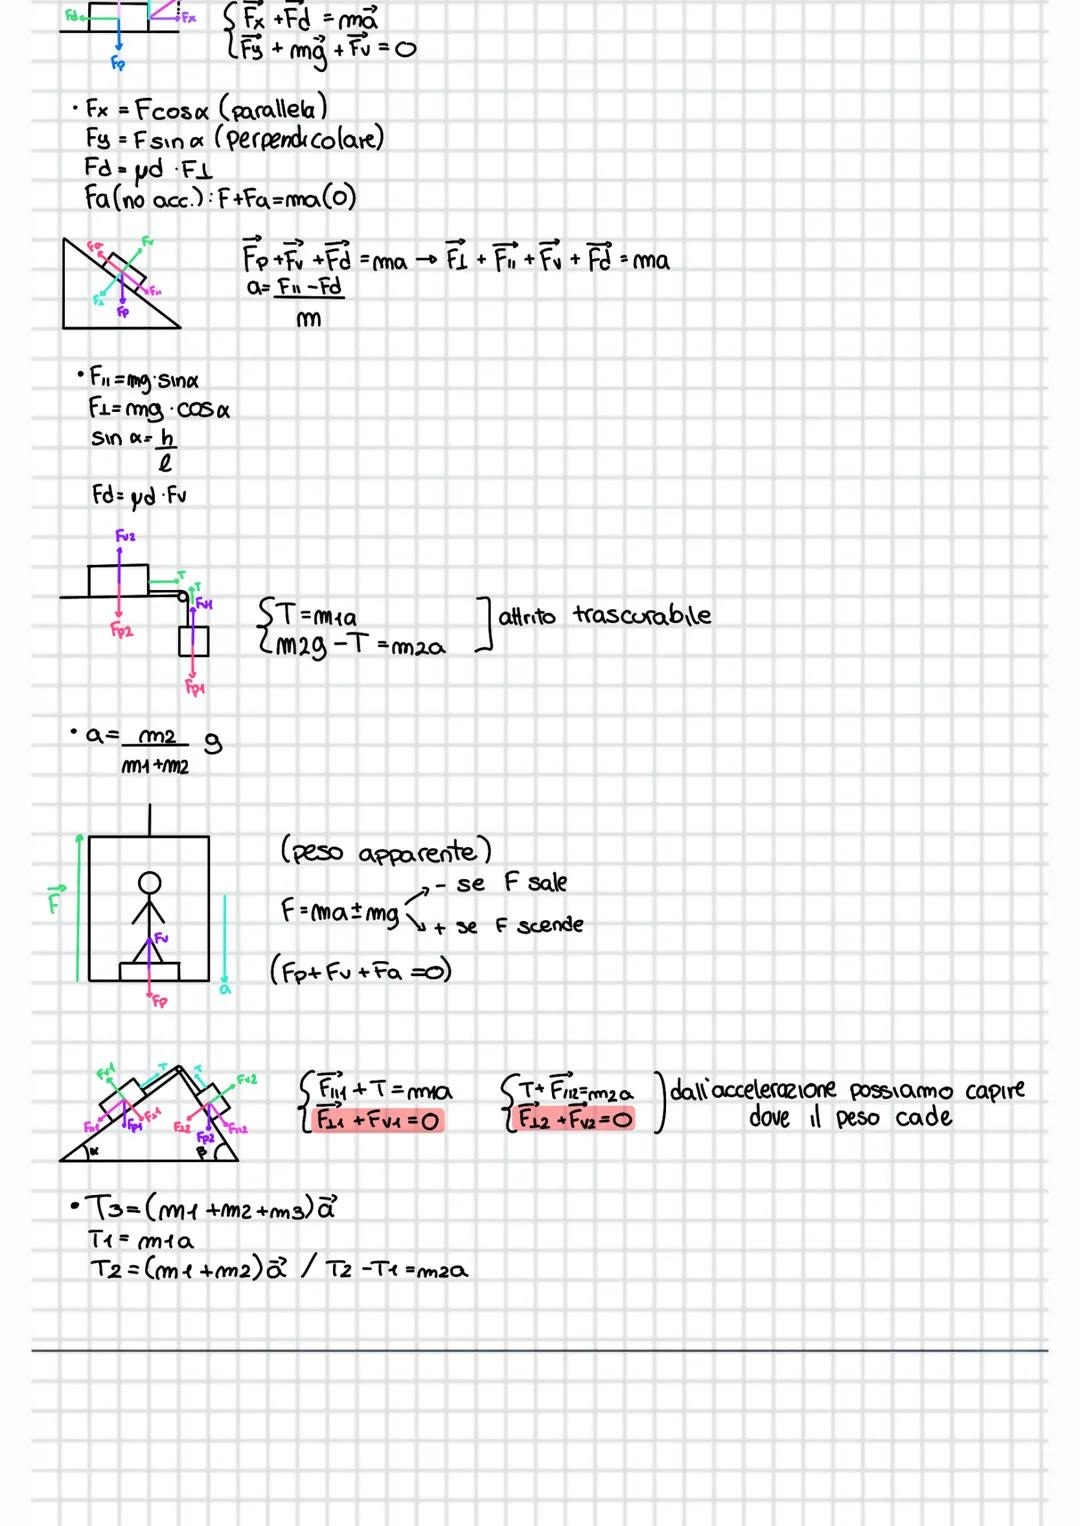 Fd Fx
Fp
Fx + Fd = ma
Fy + mg + Fv = 0
• Fx = Fcosα (parallela)
Fy = Fsinα (perpendicolare)
Fd = μd · F⊥
Fa (no acc.): F+Fa=ma(0)
Fv
F⊥ F∥
Fp
Fp + Fv + Fd = ma → F⊥ + F∥ + Fv + Fd = ma
a= F∥ - Fd
m
• F∥=mg·sinα
F⊥=mg·cosα
sin α= h
l
Fd= μd·Fv
Fv2
T
T
Fv1
Fp2
Fp1
T=m1a
m2g - T = m2a
attrito trascurabile
• a= m2 g
m1+m2
(peso apparente)
F=ma±mg - se F sale
+ se F scende
(Fp+Fv+Fa=0)
F
Fv
a
Fp
Fv1 T T Fv2
F∥1 Fp1 F⊥1 F⊥2 Fp2 F∥2
α β
F∥1 + T = m1a
F⊥1 + Fv1 = 0
T+ F∥2=m2a
F⊥2 + Fv2=0
dall'accelerazione possiamo capire
dove il peso cade
• T3=(m1+m2+m3)a
T1= m1a
T2=(m1+m2)a / T2 -T1=m2a